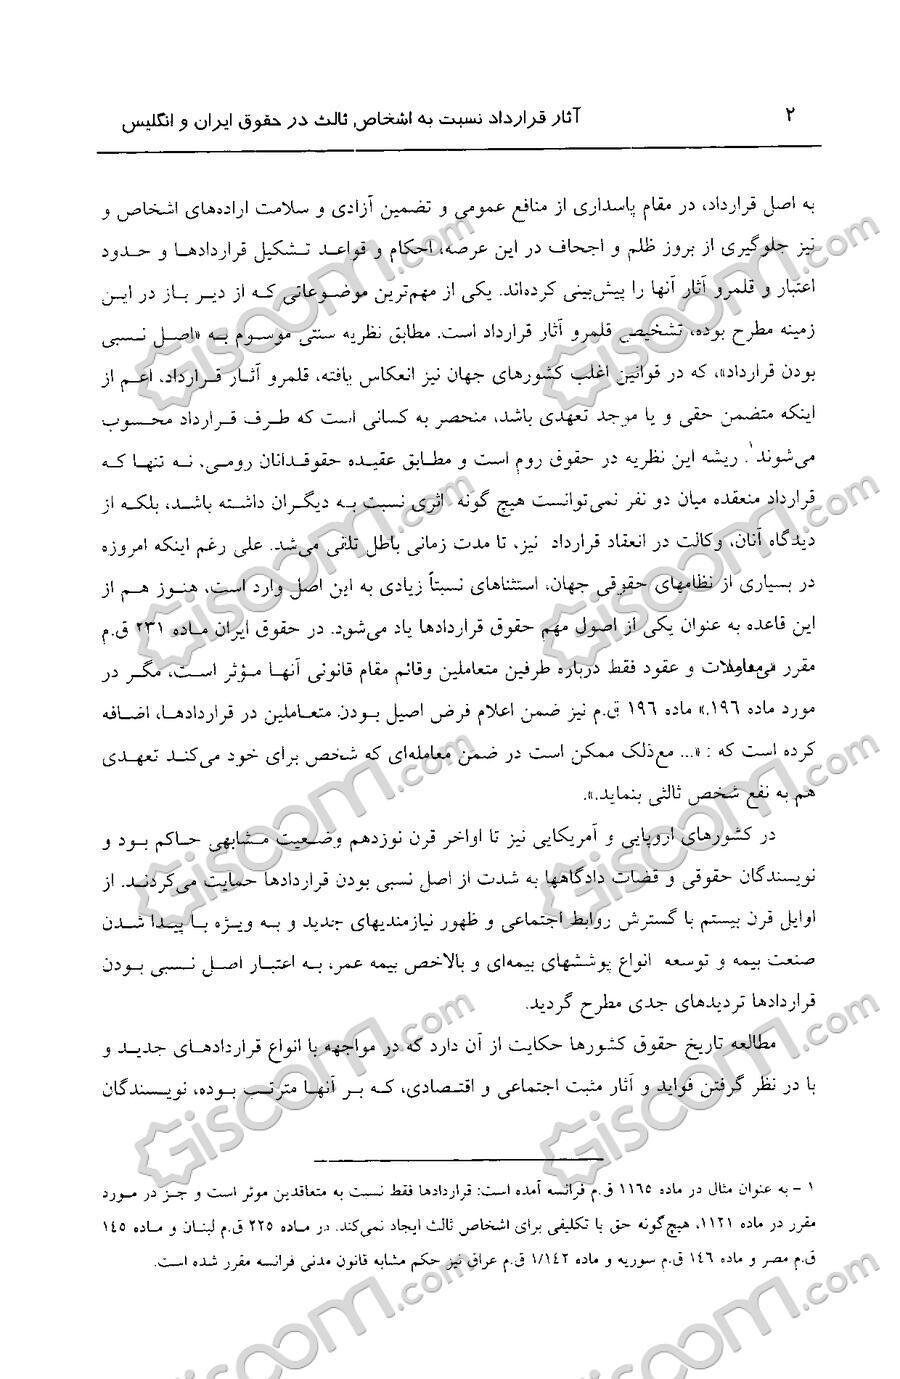 ۲
آثار قرارداد نسبت به اشخاص ثالث در حقوق ایران و انگلیس
به اصل قرارداد، در مقام پاسداری از منافع عمومی و تضمین آزادی و سلامت اراده‌های اشخاص و
نیز جلوگیری از بروز ظلم و اجحاف در این عرصه، احکام و قواعد تشکیل قراردادها و حدود
اعتبار و قلمرو آثار آنها را پیش‌بینی کرده‌اند. یکی از مهم‌ترین موضوعاتی که از دیر باز در این
زمینه مطرح بوده، تشخیص قلمرو آثار قرارداد است. مطابق نظریه سنتی موسوم به «اصل نسبی
بودن قرارداد»، که در قوانین اغلب کشورهای جهان نیز انعکاس یافته، قلمرو آثار قرارداد، اعم از
اینکه متضمن حقی و یا موجد تعهدی باشد، منحصر به کسانی است که طرف قرارداد محسوب
می‌شوند۱. ریشه این نظریه در حقوق روم است و مطابق عقیده حقوقدانان رومی، نه تنها که
قرارداد منعقده میان دو نفر نمی‌توانست هیچ گونه اثری نسبت به دیگران داشته باشد، بلکه از
دیدگاه آنان، وکالت در انعقاد قرارداد نیز، تا مدت زمانی باطل تلقی می‌شد. علی رغم اینکه امروزه
در بسیاری از نظامهای حقوقی جهان، استثناهای نسبتاً زیادی به این اصل وارد است، هنوز هم از
این قاعده به عنوان یکی از اصول مهم حقوق قراردادها یاد می‌شود. در حقوق ایران ماده ۲۳۱ ق.م
مقرر معاملات و عقود فقط درباره طرفین متعاملین وقائم مقام قانونی آنها مؤثر است، مگر در
مورد ماده ۱۹۶.» ماده ۱۹۶ ق.م نیز ضمن اعلام فرض اصیل بودن متعاملین در قراردادها، اضافه
کرده است که : «... مع‌ذلک ممکن است در ضمن معامله‌ای که شخص برای خود می‌کند تعهدی
هم به نفع شخص ثالثی بنماید.».
در کشورهای اروپایی و آمریکایی نیز تا اواخر قرن نوزدهم وضعیت مشابهی حاکم بود و
نویسندگان حقوقی و قضات دادگاهها به شدت از اصل نسبی بودن قراردادها حمایت می‌کردند. از
اوایل قرن بیستم با گسترش روابط اجتماعی و ظهور نیازمندیهای جدید و به ویژه با پیدا شدن
صنعت بیمه و توسعه انواع پوششهای بیمه‌ای و بالاخص بیمه عمر، به اعتبار اصل نسبی بودن
قراردادها تردیدهای جدی مطرح گردید.
مطالعه تاریخ حقوق کشورها حکایت از آن دارد که در مواجهه با انواع قراردادهای جدید و
با در نظر گرفتن فواید و آثار مثبت اجتماعی و اقتصادی، که بر آنها مترتب بوده، نویسندگان
۱ - به عنوان مثال در ماده ۱۱۶۵ ق.م فرانسه آمده است: قراردادها فقط نسبت به متعاقدین موثر است و جز در مورد
مقرر در ماده ۱۱۲۱، هیچ‌گونه حق با تکلیفی برای اشخاص ثالث ایجاد نمی‌کند. در ماده ۲۲۵ ق.م لبنان و ماده ۱۴۵
ق.م مصر و ماده ۱۴۶ ق.م سوریه و ماده ۱/۱۴۲ ق.م عراق نیز حکم مشابه قانون مدنی فرانسه مقرر شده است.
Giscoom.com
Giscoom.com
Giscoom.com
Giscoom.com
Giscoom.com
Giscoom.com
Giscoom.com
Giscoom.com
Giscoom.com
Giscoom.com